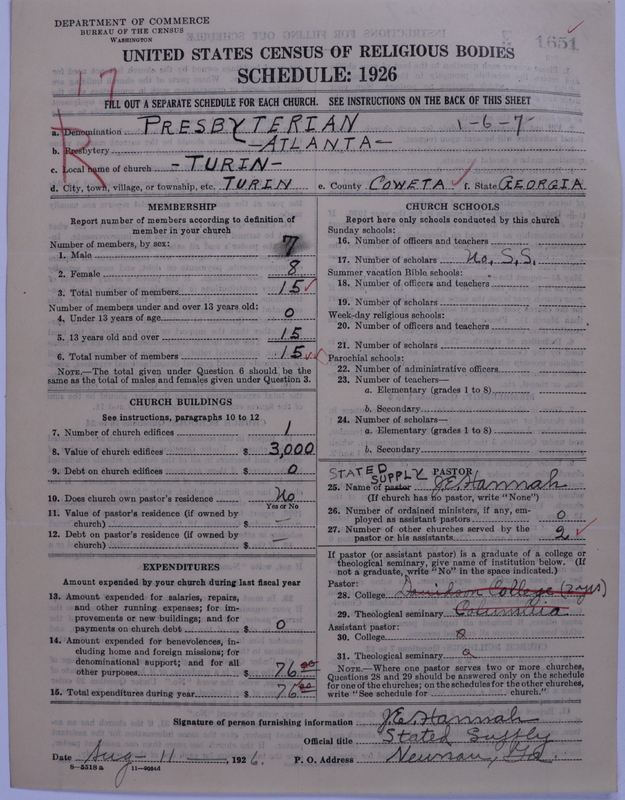 DEPARTMENT OF COMMERCE
BUREAU OF THE CENSUS
WASHINGTON
1651
UNITED STATES CENSUS OF RELIGIOUS BODIES
SCHEDULE: 1926
17
FILL OUT A SEPARATE SCHEDULE FOR EACH CHURCH. SEE INSTRUCTIONS ON THE BACK OF THIS SHEET
R
a. Denomination PRESBYTERIAN 1-6-7-
b. Presbytery -ATLANTA-
c. Local name of church -TURIN-
d. City, town, village, or township, etc. TURIN e. County COWETA f. State GEORGIA
MEMBERSHIP
Report number of members according to definition of member in your church
Number of members, by sex:
1. Male 7
2. Female 8
3. Total number of members 15
Number of members under and over 13 years old:
4. Under 13 years of age 0
5. 13 years old and over 15
6. Total number of members 15
NOTE.—The total given under Question 6 should be the same as the total of males and females given under Question 3.
CHURCH BUILDINGS
See instructions, paragraphs 10 to 12
7. Number of church edifices 1
8. Value of church edifices $ 3,000
9. Debt on church edifices $ 0
10. Does church own pastor's residence No
Yes or No
11. Value of pastor's residence (if owned by church) $ —
12. Debt on pastor's residence (if owned by church) $ —
EXPENDITURES
Amount expended by your church during last fiscal year
13. Amount expended for salaries, repairs, and other running expenses; for improvements or new buildings; and for payments on church debt $ 0
14. Amount expended for benevolences, including home and foreign missions; for denominational support; and for all other purposes $ 76.00
15. Total expenditures during year $ 76.00
CHURCH SCHOOLS
Report here only schools conducted by this church
Sunday schools:
16. Number of officers and teachers
17. Number of scholars No, S.S.
Summer vacation Bible schools:
18. Number of officers and teachers
19. Number of scholars
Week-day religious schools:
20. Number of officers and teachers
21. Number of scholars
Parochial schools:
22. Number of administrative officers
23. Number of teachers—
a. Elementary (grades 1 to 8)
b. Secondary
24. Number of scholars—
a. Elementary (grades 1 to 8)
b. Secondary
STATED SUPPLY PASTOR
25. Name of pastor J.E. Hannah
(If church has no pastor, write "None")
26. Number of ordained ministers, if any, employed as assistant pastors 0
27. Number of other churches served by the pastor or his assistants 2
If pastor (or assistant pastor) is a graduate of a college or theological seminary, give name of institution below. (If not a graduate, write "No" in the space indicated.)
Pastor:
28. College Davidson College (2 yrs)
29. Theological seminary Columbia
Assistant pastor:
30. College
31. Theological seminary
NOTE.—Where one pastor serves two or more churches, Questions 28 and 29 should be answered only on the schedule for one of the churches; on the schedules for the other churches, write "See schedule for church."
Signature of person furnishing information J.E. Hannah
Official title Stated Supply
Date Aug-11, 1926. P. O. Address Newnan, Ga
8-5518 a